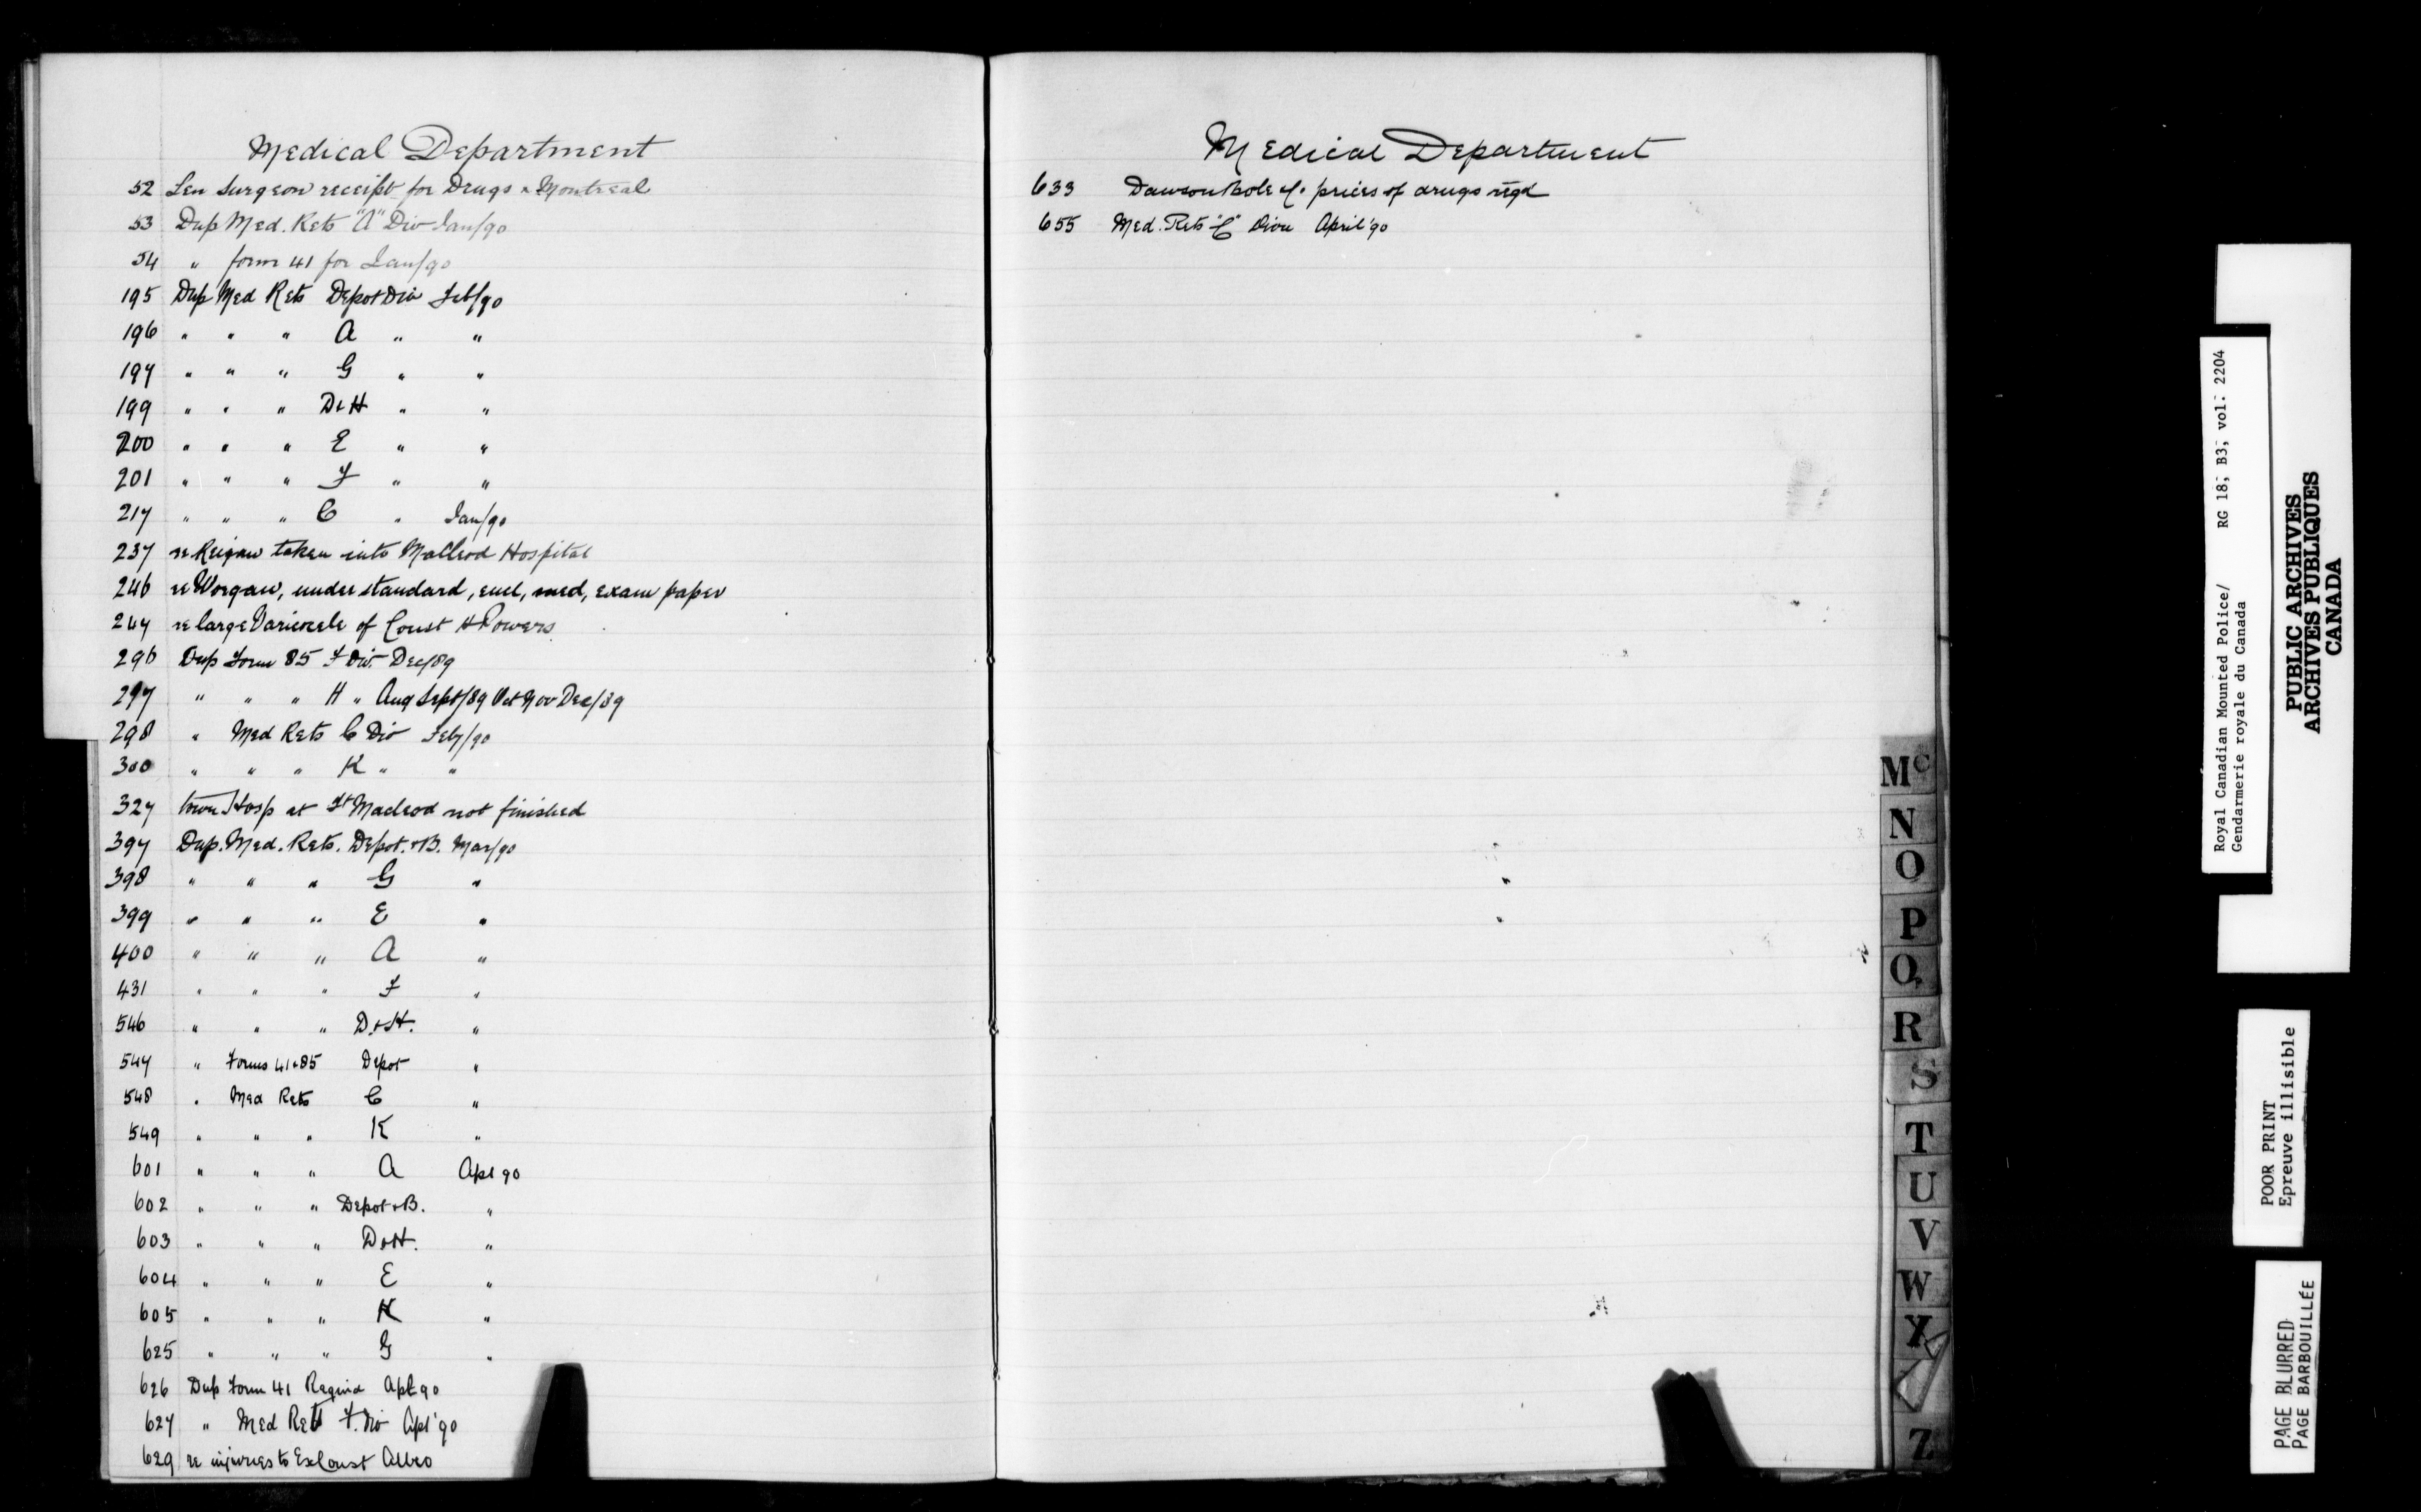 Medical Department
52 Sen Surgeon receipt for Drugs Montreal
53 Dup Med. Rets "A" Div Jan/90
54 " form 41 for Jan/90
195 Dup Med Rets Depot Div Feb/90
196 " " " A " "
197 " " " G " "
199 " " " D & H " "
200 " " " E " "
201 " " " F " "
217 " " " C " Jan/90
237 re taken into McCleod Hospital
246 re Worgan, under standard, encl, med, exam paper
247 re large Varicocele of Const H Powers
296 Dup Form 85 F Div Dec/89
297 " " " H " Aug Sept/89 Oct Nov Dec/89
298 " Med Rets C Div Feby/90
300 " " " K " "
327 town Hosp at Ft Macleod not finished
397 Dup. Med. Rets. Depot. + B. Mar/90
398 " " " G "
399 " " " E "
400 " " " A "
431 " " " F "
546 " " " D. + H. "
547 " Forms 41 + 85 Depot "
548 " Med Rets C "
549 " " " K "
601 " " " A Apl 90
602 " " " Depot + B. "
603 " " " D + H. "
604 " " " E "
605 " " " K "
625 " " " G "
626 Dup Form 41 Regina Apl 90
627 " Med Rets F. Div Apl '90
629 re injuries to Ex Const Albro
Medical Department
633 Dawson Bole & Co prices of drugs reqd
655 Med. Rets "C" Divn April '90
Mc
N
O
P
Q
R
S
T
U
V
W
X
Z
Royal Canadian Mounted Police/ RG 18, B3, vol. 2204
Gendarmerie royale du Canada
PUBLIC ARCHIVES
ARCHIVES PUBLIQUES
CANADA
POOR PRINT
Epreuve illisible
PAGE BLURRED
PAGE BARBOUILLÉE